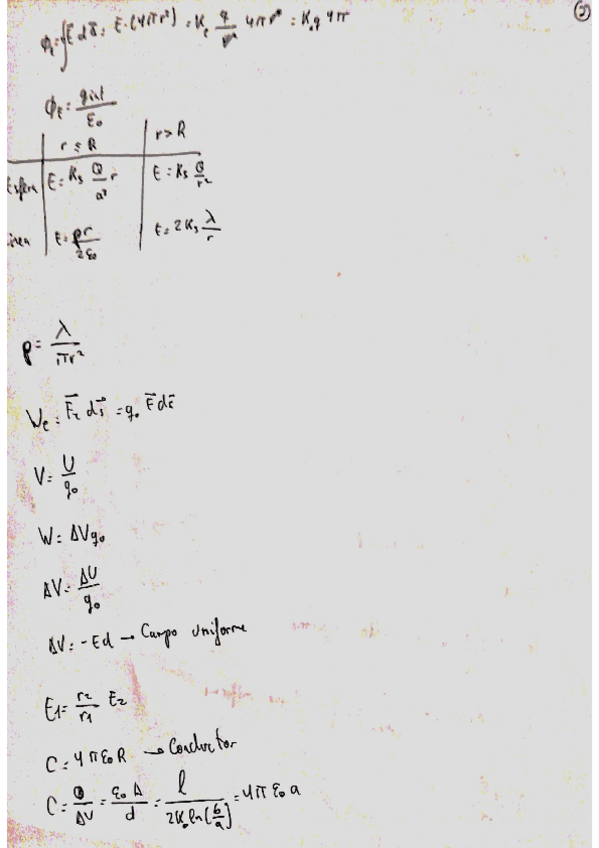 ②
ϕ_E = ∫ E⃗ d s⃗ = E·(4πr²) = K_e q/r² 4πr² = K_e q 4π
ϕ_E = q int / ε₀
r ≤ R | r > R
Esfera | E = K_s Q/a³ r | E = K_s Q/r²
Línea | E = ρr/2ε₀ | E = 2K_s λ/r
ρ = λ/πr²
W_e = F⃗_e d s⃗ = q₀ E⃗ d s⃗
V = U/q₀
W = ΔV q₀
ΔV = ΔU/q₀
ΔV = -Ed → Campo uniforme
E₁ = r₂/r₁ E₂
C = 4πε₀R → Conductor
C = Q/ΔV = ε₀ A/d = l/(2K_e ln(b/a)) = 4π ε₀ a